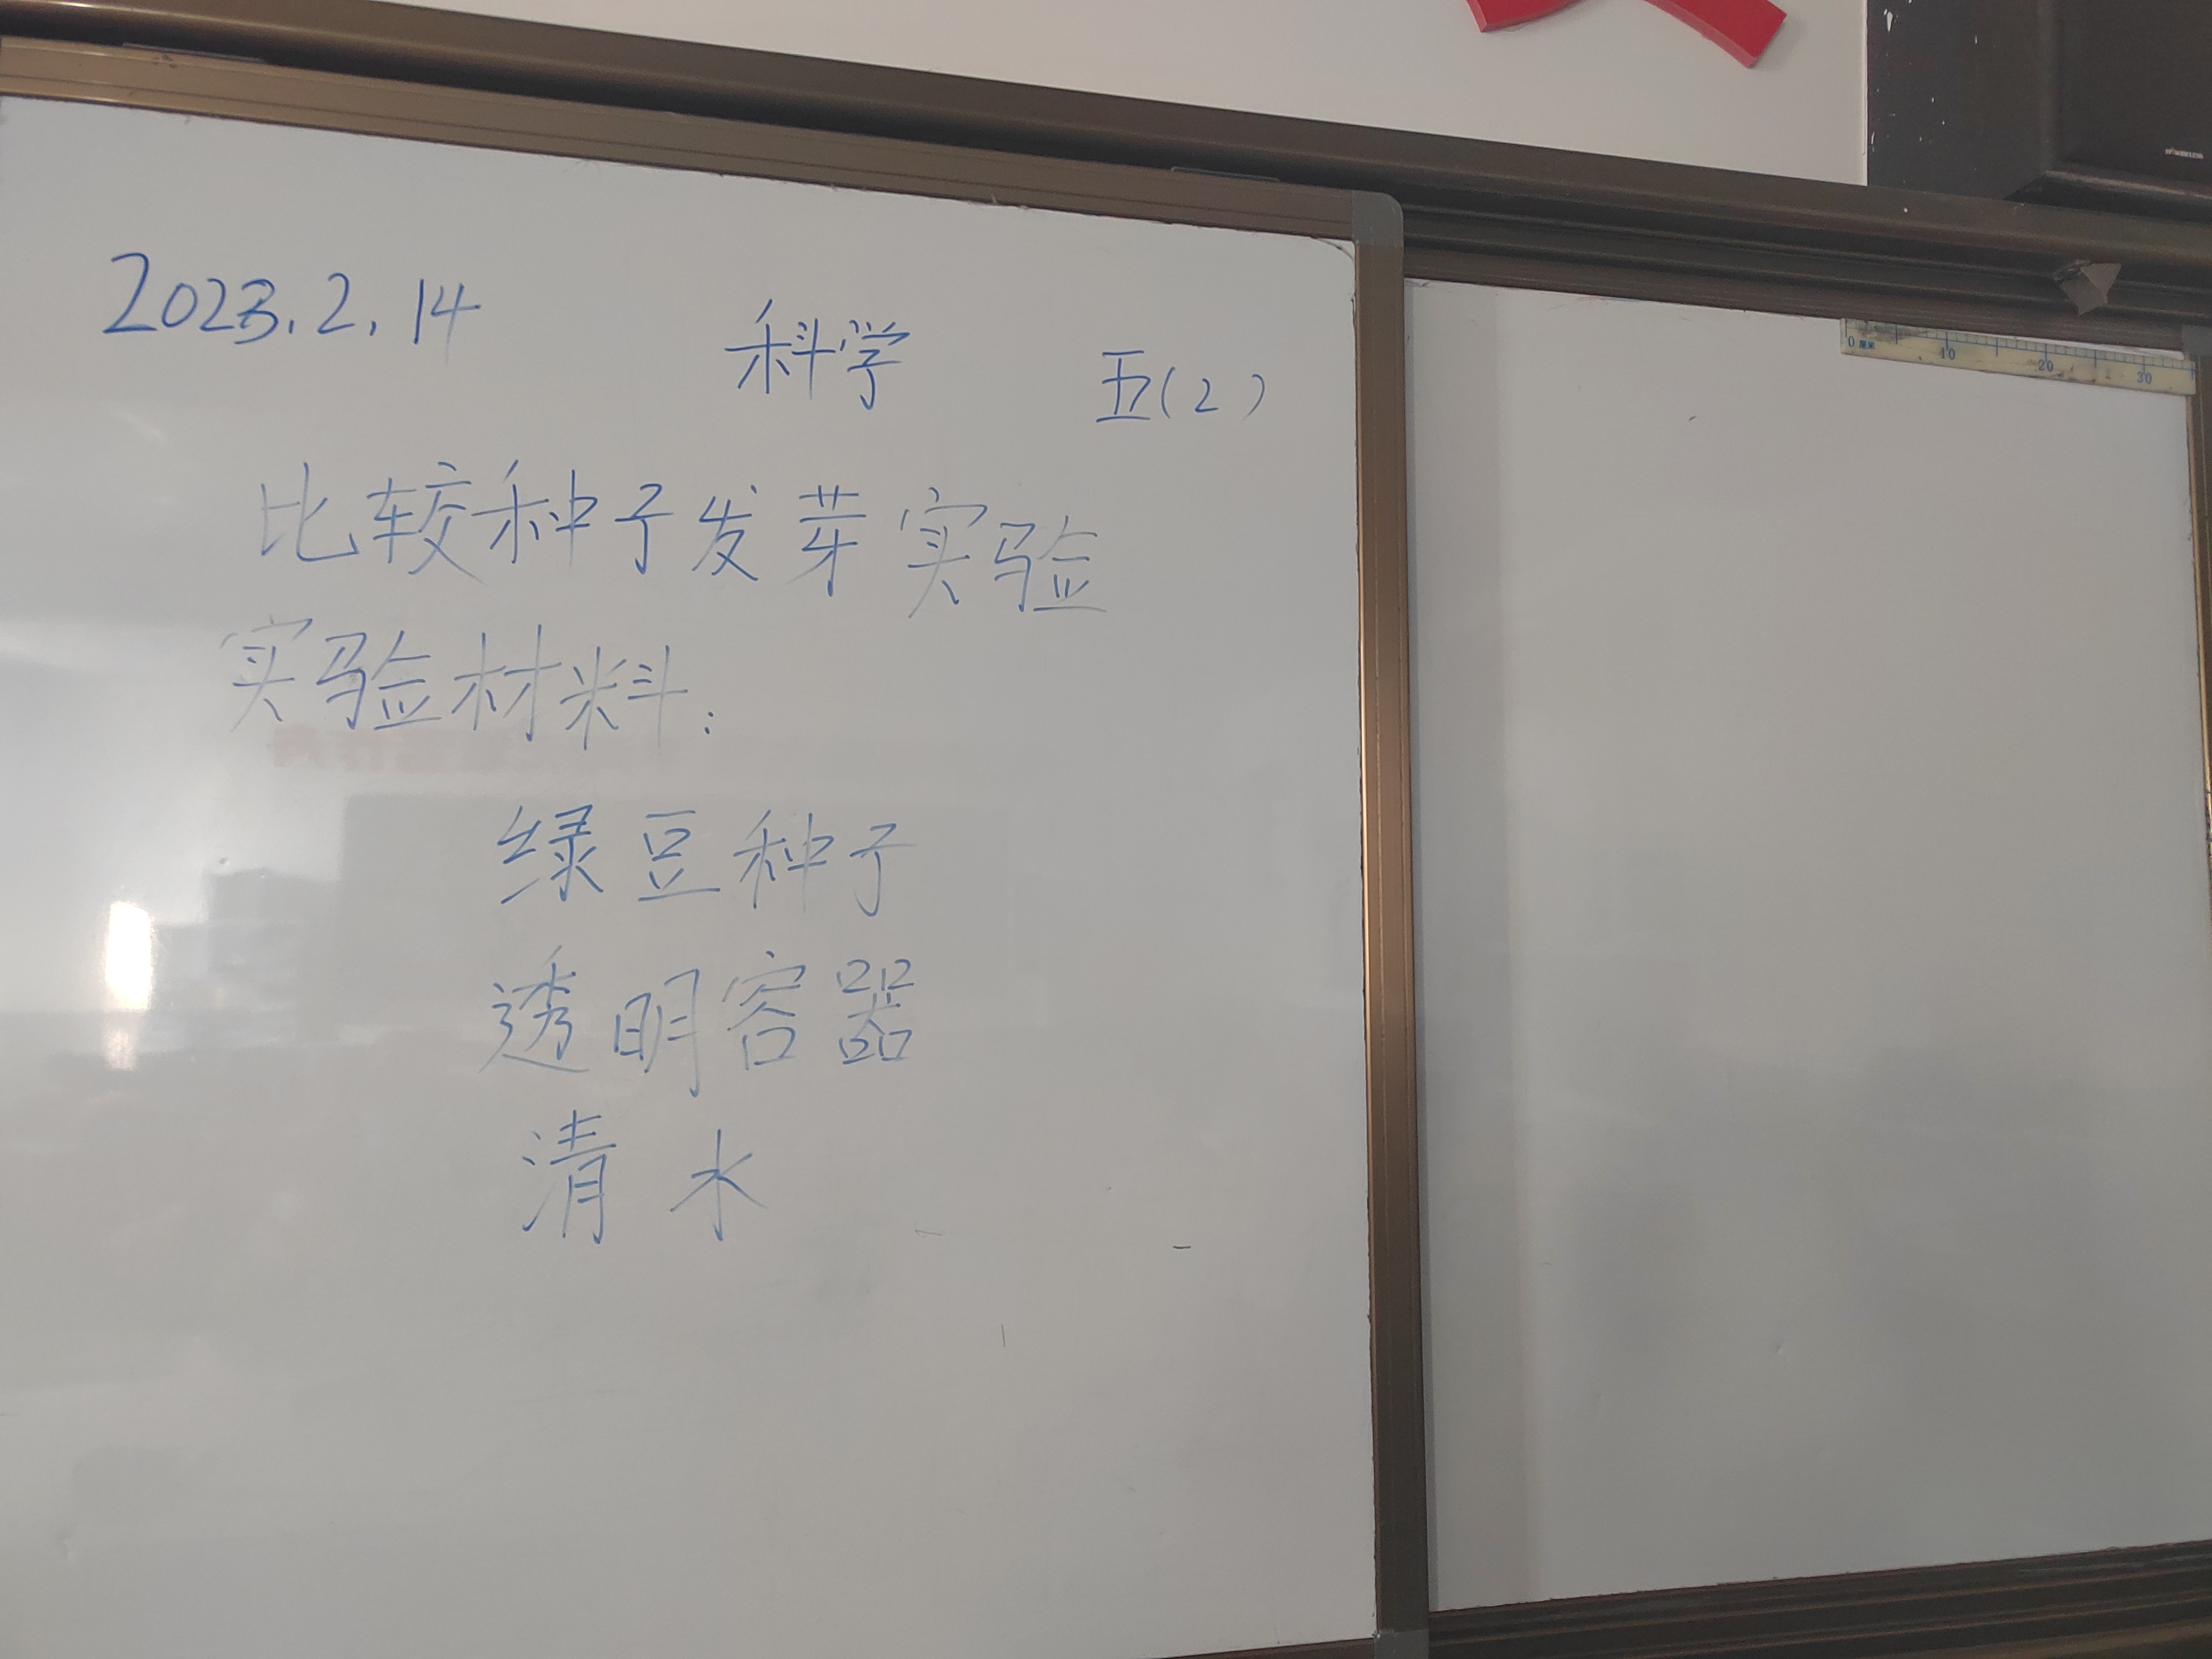 2023.2.14 科学 五(2)
比较种子发芽实验
实验材料:
绿豆种子
透明容器
清水
0 厘米 10 20 30